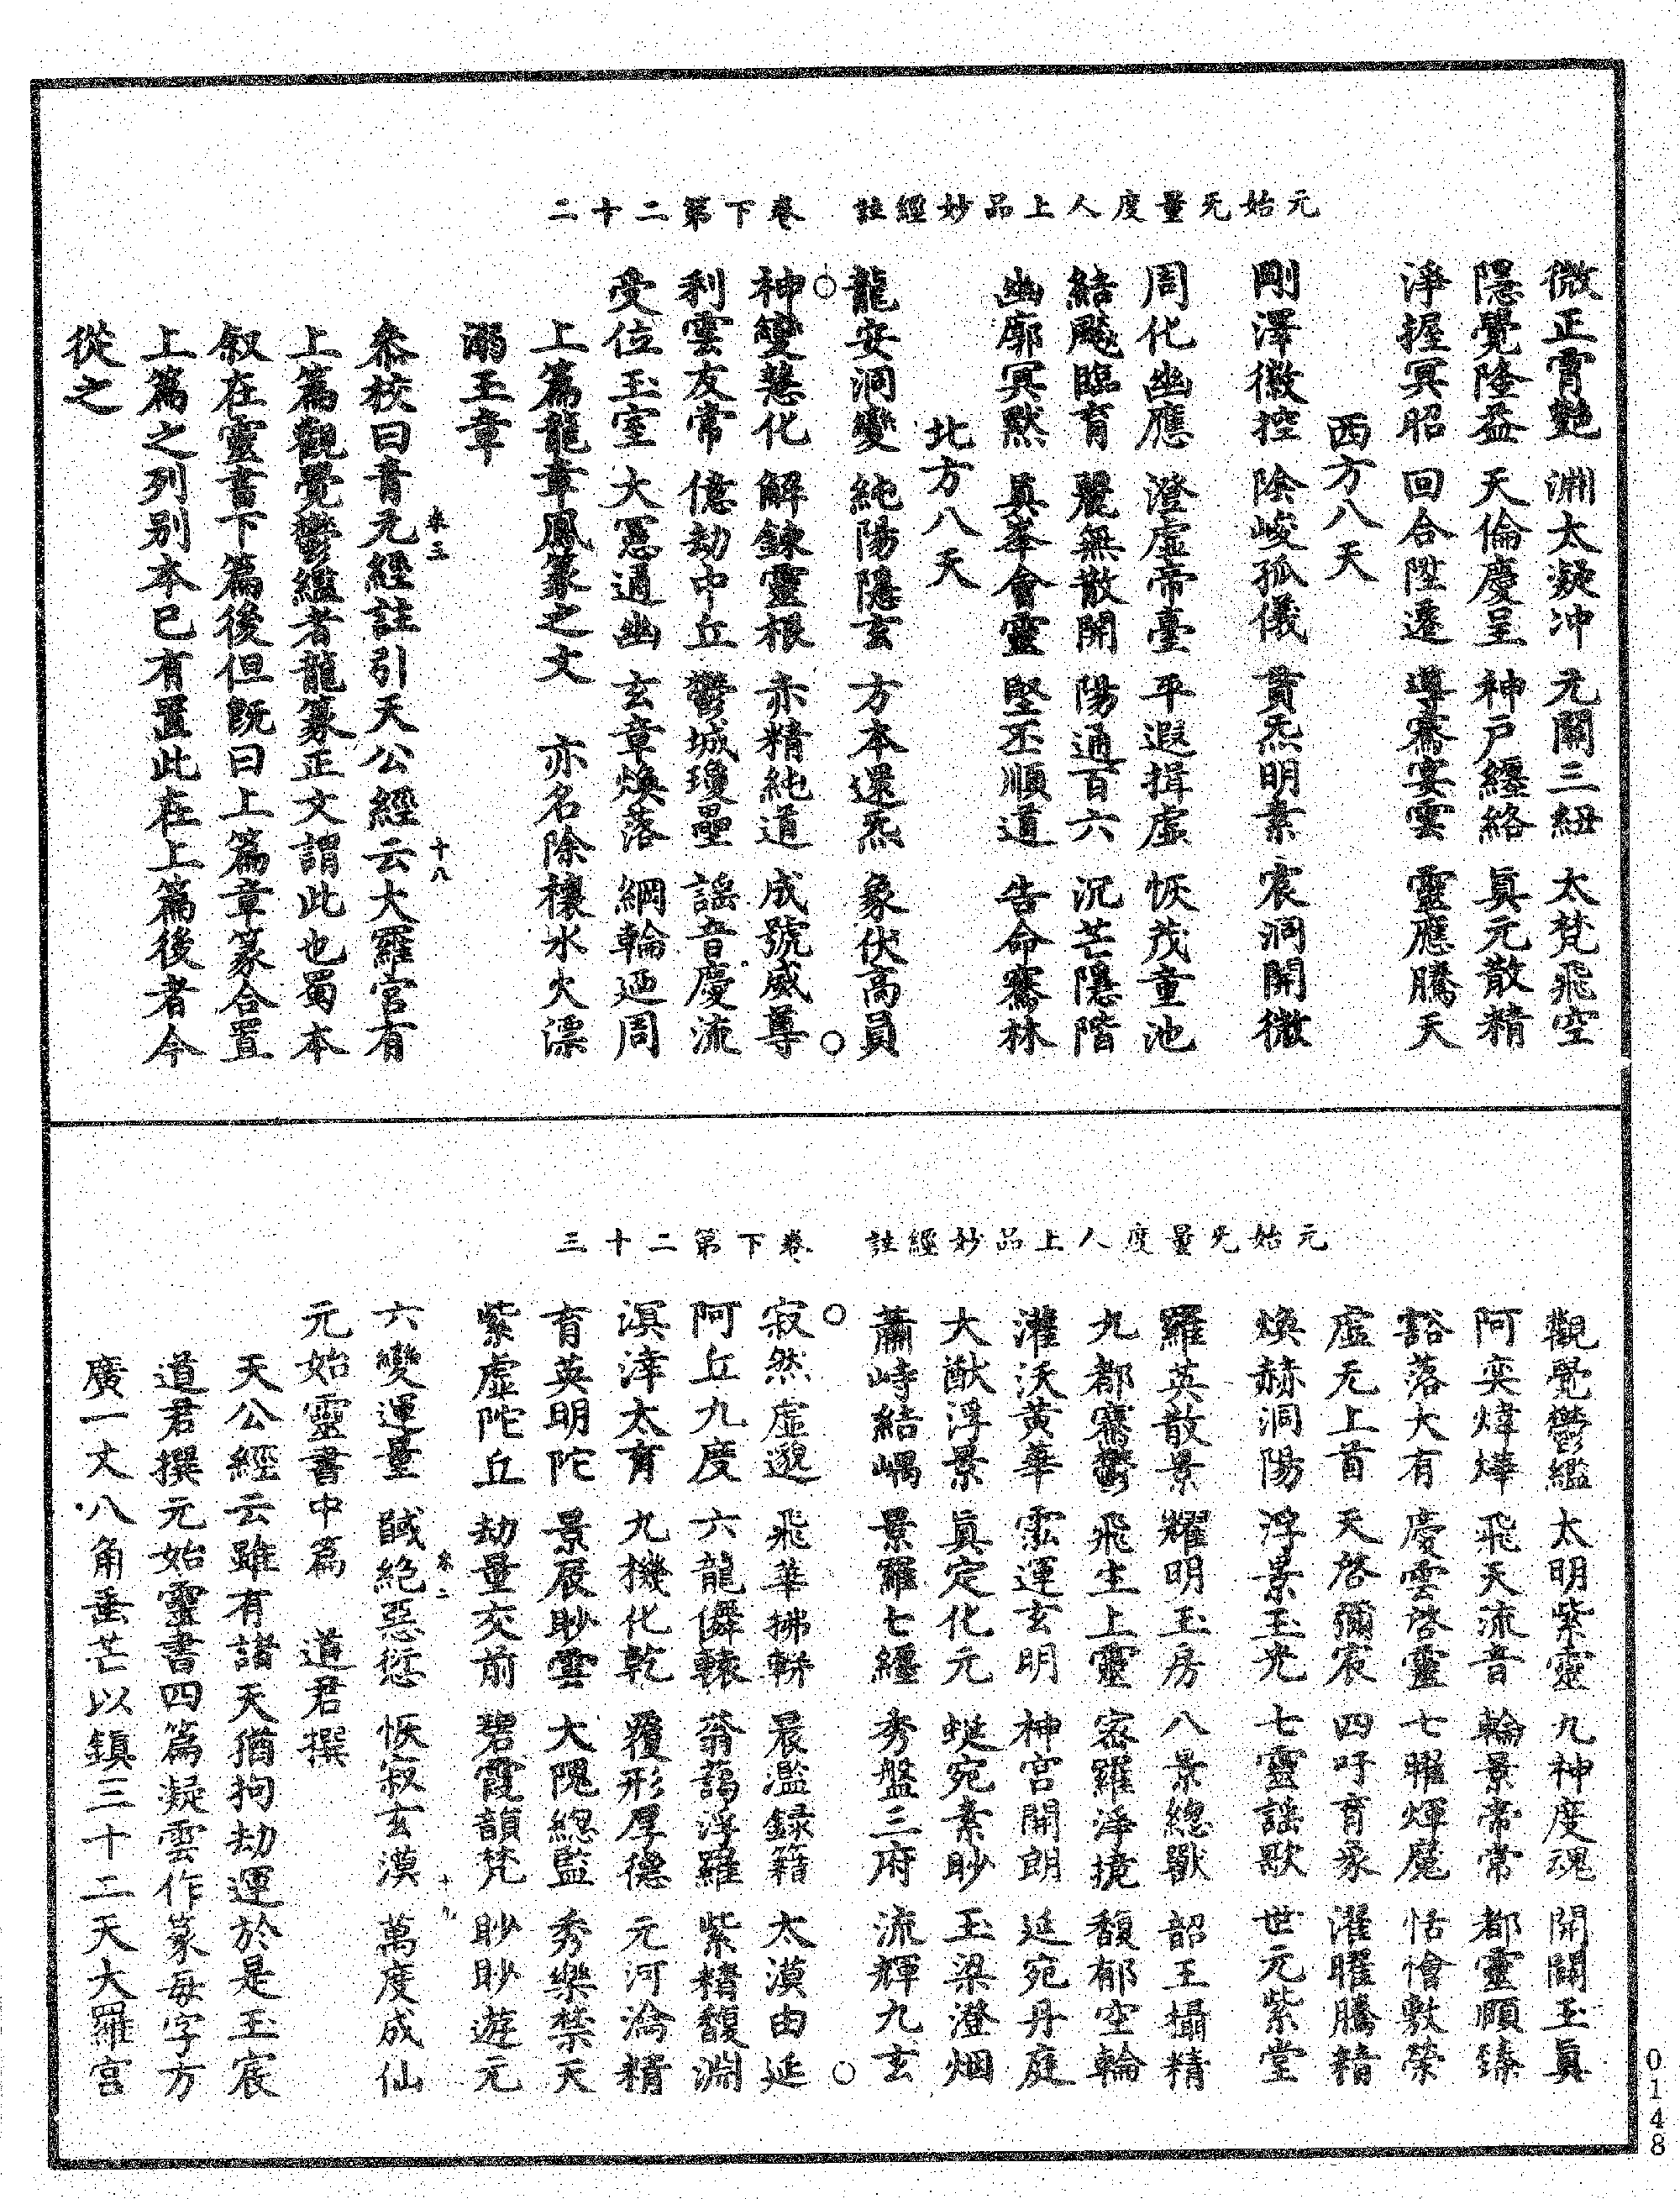 元始旡量度人上品妙經註　卷下第二十二
微正霄艶　淵太凝沖　元關三紐　太梵飛空
隱覺隆益　天倫慶呈　神戶纒絡　眞元散精
淨握冥昭　回合陞遷　導騫宴雲　靈應騰天
西方八天
剛澤徽控　陰峻孤儀　貫炁明素　宸洞開微
周化幽應　澄虛帝臺　平遐揖虛　恢茂童池
結颷臨育　麗無散開　陽通百六　沉芒隱階
幽廓冥黙　眞峯會靈　堅丕順道　告命騫林
北方八天
龍安洞變　純陽隱玄　方本還炁　象伏高員
神變慧化　解鍊靈根　赤精純道　成號威尊
利雲友常　億劫中丘　鬱城瓊壘　謡音慶流
受位玉室　大慝通幽　玄章煥落　綱輪迊周
上篇龍章鳳篆之文　亦名除禳水火漂
溺玉章
叅校曰青元經註引天公經云大羅宮有
卷三　十八
上篇觀覺鬱繿者龍篆正文謂此也蜀本
叙在靈書下篇後但旣曰上篇章篆合置
上篇之列别本已有置此在上篇後者今
從之
元始旡量度人上品妙經註　卷下第二十三
觀覺鬱繿　太明紫靈　九神度魂　開關玉眞
阿奕煒燁　飛天流音　輪景常常　都靈願臻
豁落大有　慶雲啓靈　七曜煇魔　恬憺敷榮
虛无上首　天啓彌宸　四吁育衆　濯曜騰精
煥赫洞陽　浮景玉光　七靈謡歌　世元紫堂
羅英散景　耀明玉房　八景總獸　韶王攝精
九都騫鬱　飛生上靈　密羅淨境　馥郁空輪
灌沃黃華　霐運玄明　神宮開朗　延宛丹庭
大猷浮景　眞定化元　蜒宛素眇　玉梁澄烟
蕭峙結嵎　景羅七纒　秀盤三府　流輝九玄
寂然虛邈　飛華拂軿　晨濫録籍　太漠由延
阿丘九度　六龍僻轅　蓊藹浮羅　紫精馥淵
溟涬太育　九機化乾　覆形厚德　元河淪精
育英明陀　景展眇雲　大隗總監　秀樂禁天
紫虛陀丘　劫量交前　碧霞韻梵　眇眇遊元
六變運量　馘絶惡愆　恢寂玄漠　萬度成仙
卷二　十九
元始靈書中篇　道君撰
天公經云雖有諸天猶拘劫運於是玉宸
道君撰元始靈書四篇凝雲作篆每字方
廣一丈八角垂芒以鎮三十二天大羅宮
0148